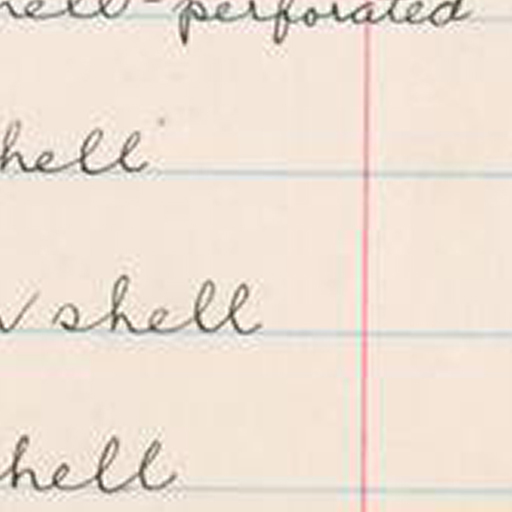 hell - perforated
hell
shell
hell